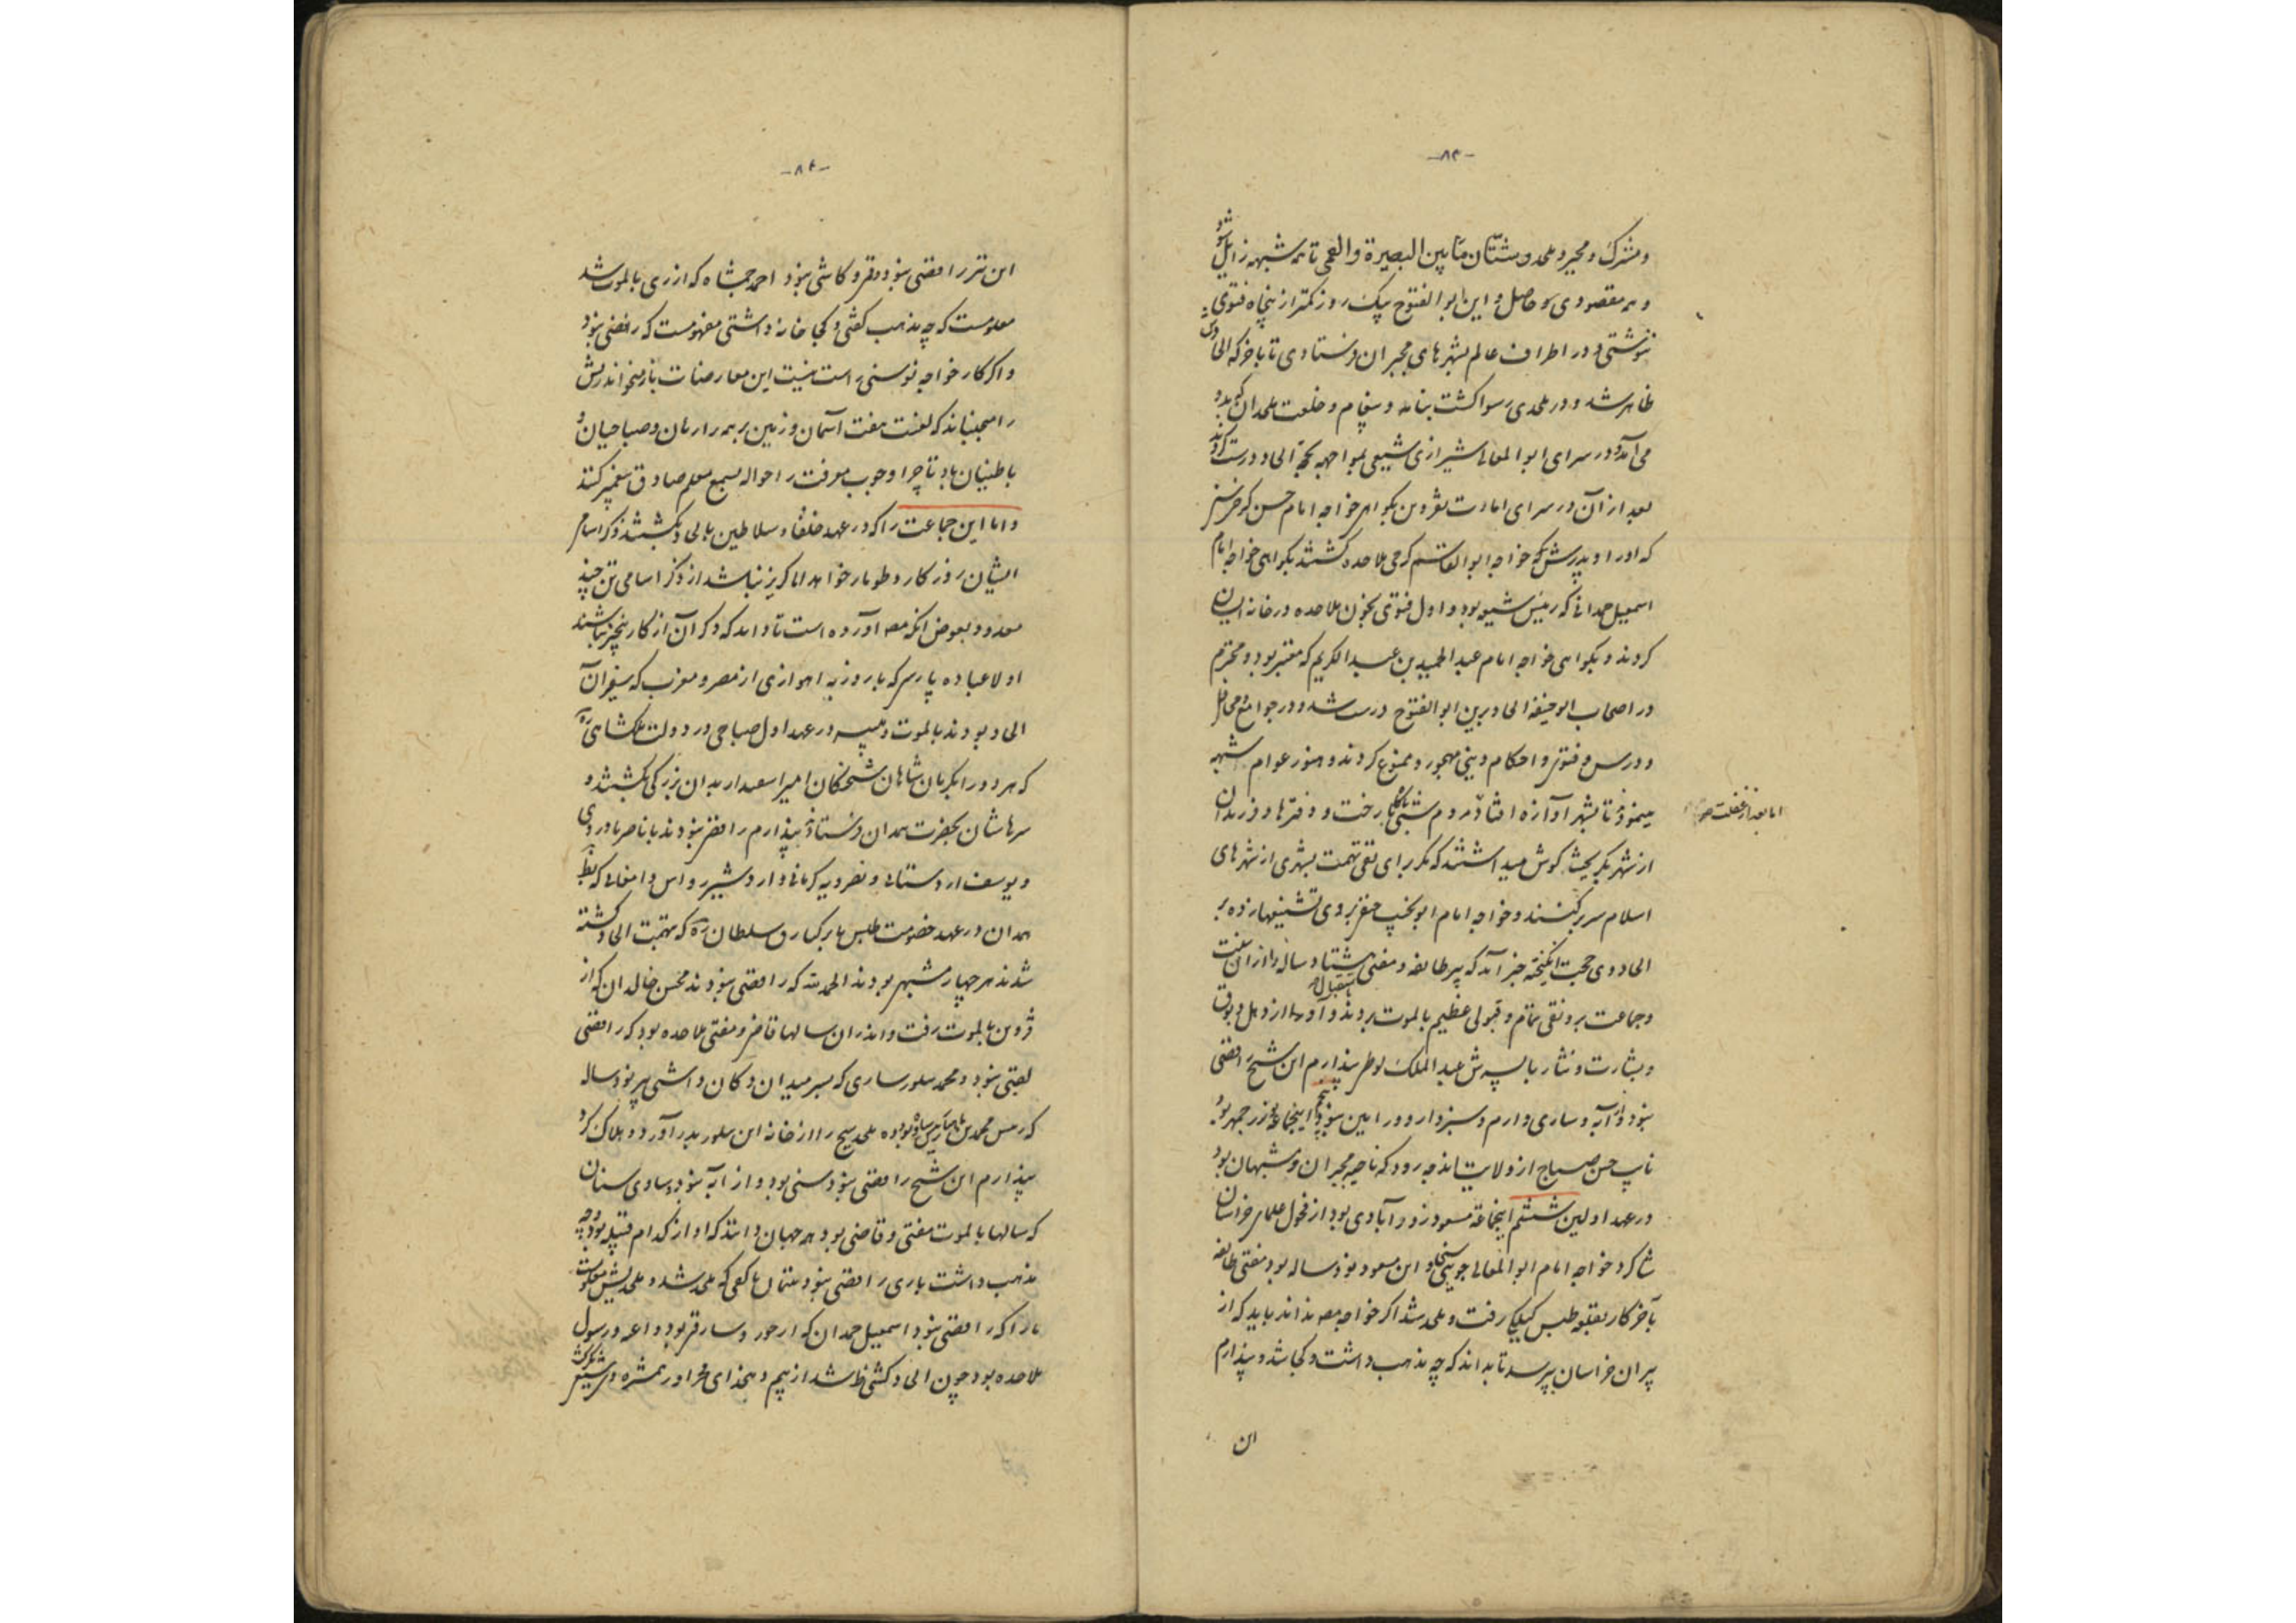 -۸۳-
و مشرک و مجبر و ملحد و شتّان مابین البصیرة والعمی تا همه شبهه زایل شود
و همه مقصودی حاصل و این ابوالفتوح بیک روز کمتر از پنجاه فتوی
نوشتی و در اطراف عالم بشهرهای مجبران فرستادی تا باخر که الحادش
ظاهر شد و در ملحدی رسوا گشت بنامه و پیغام و خلعت ملحدان که بدو
می‌آمد و در سرای ابوالمعالی شیرازی شیعی بمواجهه بحجة الحاد درست کردند
بعد از آن در سرای امارت بقزوین بگواهی خواجه امام حسن کرخی
که او را و پدرش خواجه ابوالقاسم کرجی ملاحده کشتند بگواهی خواجه امام
اسمعیل حمدانی که رئیس شیعه بود و اول فتوی بخون ملاحده در خانه ایشان
کردند و بگواهی خواجه امام عبدالحمید بن عبدالکریم که معتبر بود و محترم
در اصحاب ابوحنیفه الحاد برین ابوالفتوح درست شد و در جوامع و محافل
و درس و فتوی و احکام دینی مهجور و ممنوع کردند و هنوز عوام شبهه
مینمود تا بشهر آوازه افتاد مردم رخت و دفترها و فرزندان
اما بعد از غفلت
از شهر گوش میداشتند که مگر برای نفی تهمت بشهری از شهرهای
اسلام سر برکنند و خواجه امام ابونجیب بروی تشنیعها زده بر
الحاد وی حجت انگیخته خبر آمد که پیر طایفه و مفتی هشتاد ساله را از ان سنت
و جماعت برونقی تمام و قبولی عظیم بالموت بردند و آوردند استقبال از دهل و بوق
و بشارت و نثار با پسرش عبدالملک پندارم این شیخ رافضی
نبود و از آبه و ساری و ارم و سبزوار و ورامین نبود پنجم اینجماعة
نایب حسن صباح از ولایت که ناحیه مجبران و مشبهان بود
در عهد اولین ششم اینجماعة مسعود زورآبادی بود از فحول علمای خراسان
شاگرد خواجه امام ابوالمعالی جوینی این مسعود نود ساله بود مفتی طایفه
بآخر کار بقلعه طبس گیلکی رفت و ملحد شد اگر خواجه نداند باید که از
پیران خراسان بپرسد تا بداند که چه مذهب داشت و کجا شد و پندارم
این
-۸۴-
این نیز رافضی نبود و قمی و کاشی نبود احمد که از ری بالموت شد
معلومست که چه مذهب گفتی و کجا خانه داشتی مفهومست که رافضی نبود
و اگر کار خواجه نوسنی راست نیست این معارضات باز میخواند ریش
را میجنباند که لعنت هفت آسمان و زمین بر همه و صباحیان و
باطنیان باد تا چرا وجوب معرفت را حواله بسمع معلم صادق کنند
و اما این جماعت را که در عهد خلفا و سلاطین بالحاد بکشتند ذکر اسامی
ایشان روزگار و طومار خواهد اما گریز نباشد از ذکر اسامی تنی چند
معدود بعوض آنکه آورده است تا داند که ذکر آن از کار نباشند
اولا عباده پارسی که با روزبه اهوازی از مصر و مغرب که سفیران
الحاد بودند بالموت و میمه در عهد اول صباحی در دولت ملکشاهی
که هر دو را شاهان شحنگان امیر اسعد بدان بزرگی بکشتند و
سرهاشان بحضرت همدان فرستاد پندارم رافضی نبودند با ناصر باوردی
و یوسف اردستانی و نصرویه کرمانی و اردشیر دامغانی که
همدان در عهد خصومت با برکیارق سلطان که بتهمت الحاد کشته
شدند هر چهار مشبهی بودند الحمدلله که رافضی نبودند محسن خالدان که از
قزوین بالموت رفت و اندران سالها قاضی و مفتی ملاحده بود که رافضی
نبود و محمد سلور ساری که بسر میدان دکان داشتی پیر نود ساله
که رئیس محمد ملحد را از خانه این سلور بدر آورد و هلاک کرد
پندارم این شیخ رافضی نبود سنی بود و از آبه نبود ساوی
که سالها بالموت مفتی و قاضی بود همه جهان دانند که او از کدام قبیله بود و چه
مذهب داشت باری رافضی نبود که ملحد شد و ملحدیش معلومست
رافضی نبود و اسمعیل حمدان که بود و داعی و رسول
ملاحده بود چون الحادش ظاهر شد از بیم